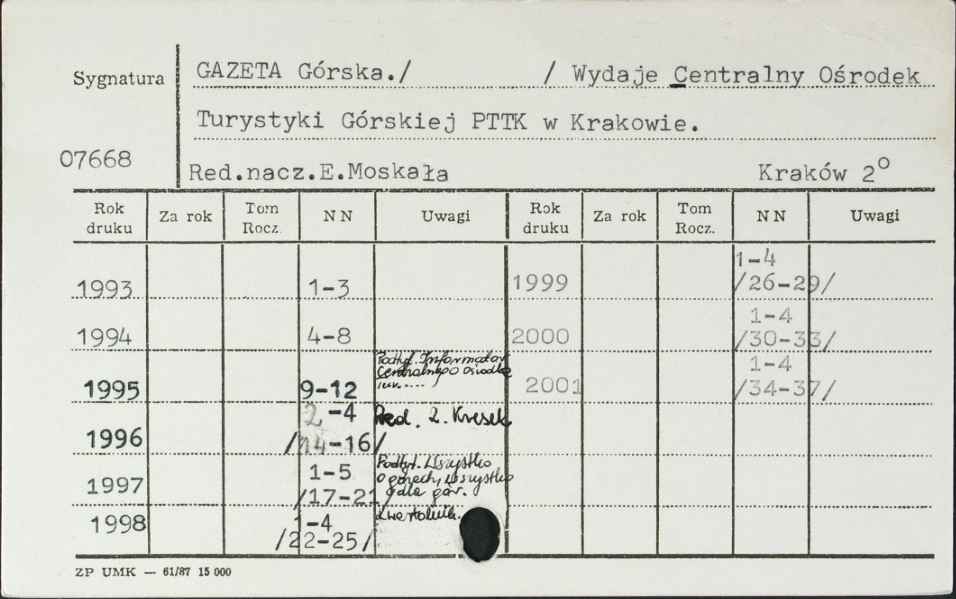 Sygnatura
GAZETA Górska./ / Wydaje Centralny Ośrodek
Turystyki Górskiej PTTK w Krakowie.
07668
Red.nacz.E.Moskała Kraków 2°
Rok druku Za rok Tom Rocz. NN Uwagi Rok druku Za rok Tom Rocz. NN Uwagi
1993 1-3 1999 1-4 /26-29/
1994 4-8 2000 1-4 /30-33/
1995 9-12 Podtyt. Informator Centralnego Ośrodka 2001 1-4 /34-37/
1996 2-4 /14-16/ Red. Z. Kresek
1997 1-5 /17-21/ Podtyt. Wszystko o górach, wszystko dla gór.
1998 1-4 /22-25/ Kwartalnik.
ZP UMK — 61/87 15 000